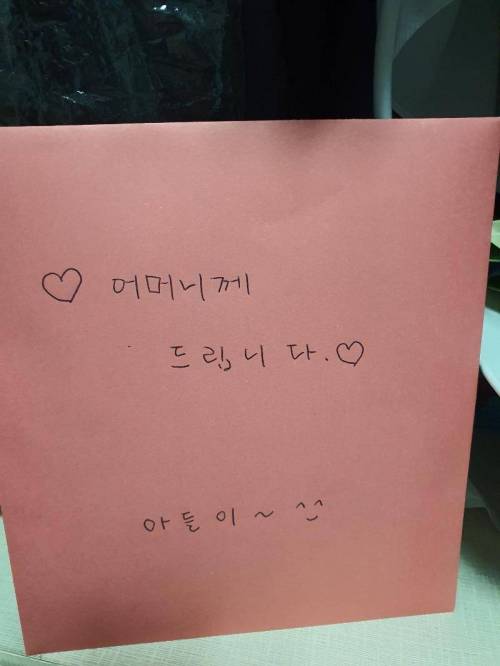 ♡ 어머니께
드립니다.♡
아들이~ ^^